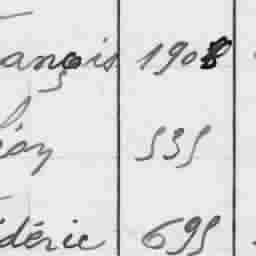 ançois 1908
éon 535
édéric 695